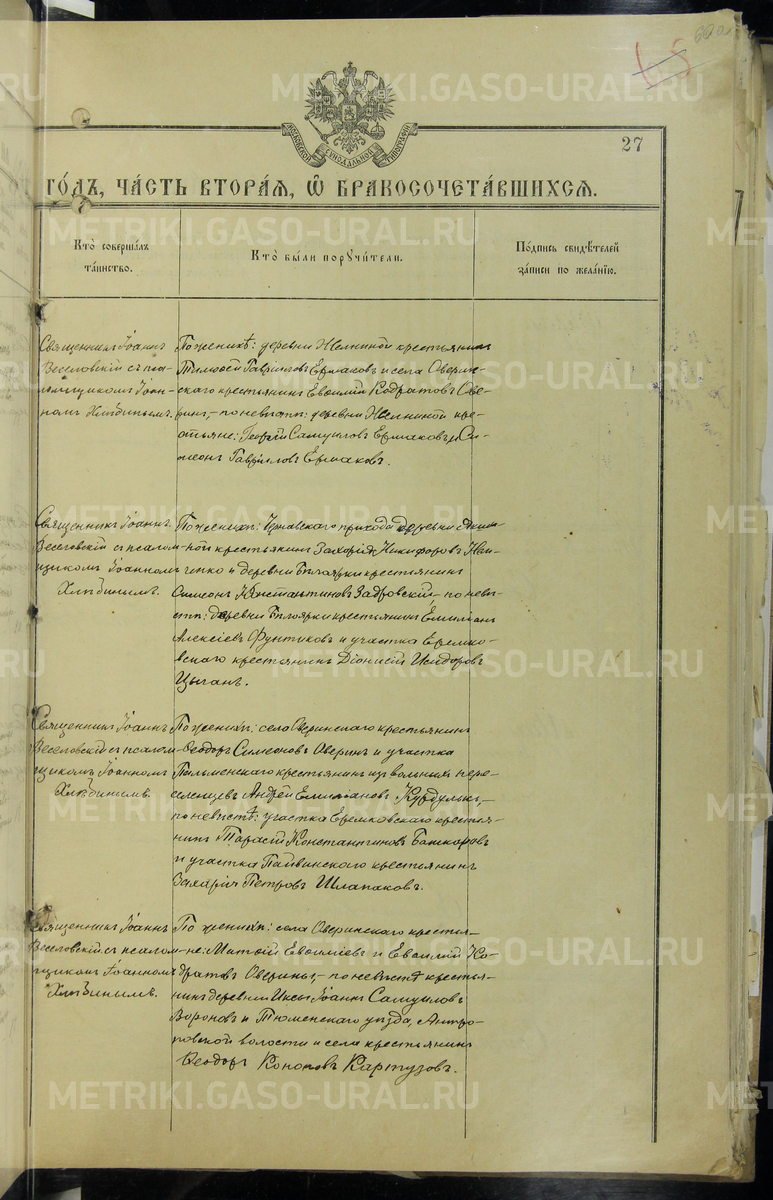 27
МОСКОВСКОЙ СѴНОДАЛЬНОЙ ТИПОГРАФІИ
ГО́ДЪ, ЧА́СТЬ ВТОРА́Я, Ѡ БРАКОСОЧЕТА́ВШИХСЯ.
Кто̀ соверша́лъ
та́инство.
Кто̀ бы́ли порꙋчи́тели.
По́дпись свидѣ́телей
за́писи по жела́нію.
Священникъ Іоаннъ
Веселовскій съ пса-
ломщикомъ Іоан-
номъ Хлѣбинымъ.
По женихѣ: деревни крестьянинъ
Тимоѳей Гавріиловъ Ермаковъ и села Оверин-
скаго крестьянинъ Евѳимій Кодратовъ Ове-
ринъ, – по невѣстѣ: деревни кре-
стьяне: Георгій Самуиловъ Ермаковъ и Си-
меонъ Гавріиловъ Ермаковъ.
Священникъ Іоаннъ
Веселовскій съ псалом-
щикомъ Іоанномъ
Хлѣбинымъ.
По женихѣ: прихода деревни
крестьянинъ Захарія Никифоровъ
и деревни Бѣлоярки крестьянинъ
Симеонъ Константиновъ Задровскій – по невѣ-
стѣ: деревни Бѣлоярки крестьянинъ Емиліанъ
Алексіевъ Фунтиковъ и участка Еремко-
вскаго крестьянинъ Діонисій Исидоровъ
Цыганъ.
Священникъ Іоаннъ
Веселовскій съ псалом-
щикомъ Іоанномъ
Хлѣбинымъ.
По женихѣ: села Оверинскаго крестьянинъ
Ѳеодоръ Симеоновъ Оверинъ и участка
крестьянинъ изъ вольныхъ пере-
селенцевъ Андрей Емиліановъ Курдулькъ, –
по невѣстѣ: участка Еремковскаго крестья-
нинъ Тарасій Константиновъ Башкаровъ
и участка крестьянинъ
Захарія Петровъ Шлапаковъ.
Священникъ Іоаннъ
Веселовскій съ псалом-
щикомъ Іоанномъ
Хлѣбинымъ.
По женихѣ: села Оверинскаго крестья-
не: Матѳій Евѳиміевъ и Евѳимій Ко-
дратовъ Оверины, – по невѣстѣ крестья-
нинъ деревни Иксы Іоаннъ Самуиловъ
Вороновъ и Тюменскаго уѣзда, Антро-
повской волости и села крестьянинъ
Ѳеодоръ Кононовъ Картузовъ.
METRIKI.GASO-URAL.RU